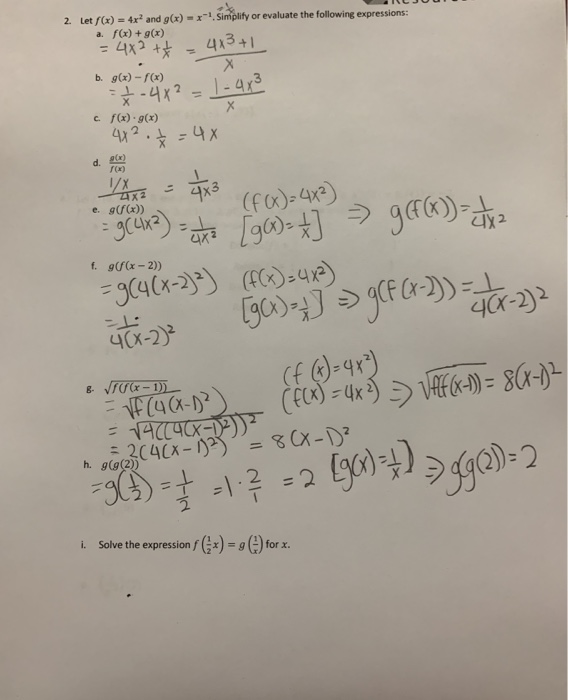 2. Let f(x) = 4x² and g(x) = x⁻¹. Simplify or evaluate the following expressions:
a. f(x) + g(x)
= 4x² + 1/x = (4x³+1)/x
b. g(x) − f(x)
= 1/x - 4x² = (1-4x³)/x
c. f(x) · g(x)
4x² · 1/x = 4x
d. g(x)/f(x)
(1/x)/(4x²) = 1/(4x³)
e. g(f(x)) (f(x)=4x²)
= g(4x²) = 1/(4x²) [g(x)=1/x] ⇒ g(f(x))=1/(4x²)
f. g(f(x − 2)) (f(x)=4x²)
= g(4(x-2)²) [g(x)=1/x] ⇒ g(f(x-2))=1/(4(x-2)²)
= 1/(4(x-2)²)
g. √f(f(x − 1)) (f(x)=4x²)
= √f(4(x-1)²) (f(x)=4x²) ⇒ √f(f(x-1)) = 8(x-1)²
= √4((4(x-1)²))²
= 2(4(x-1)²) = 8(x-1)²
h. g(g(2))
= g(1/2) = 1/(1/2) = 1·2/1 = 2 [g(x)=1/x] ⇒ g(g(2))=2
i. Solve the expression f(½x) = g(1/x) for x.